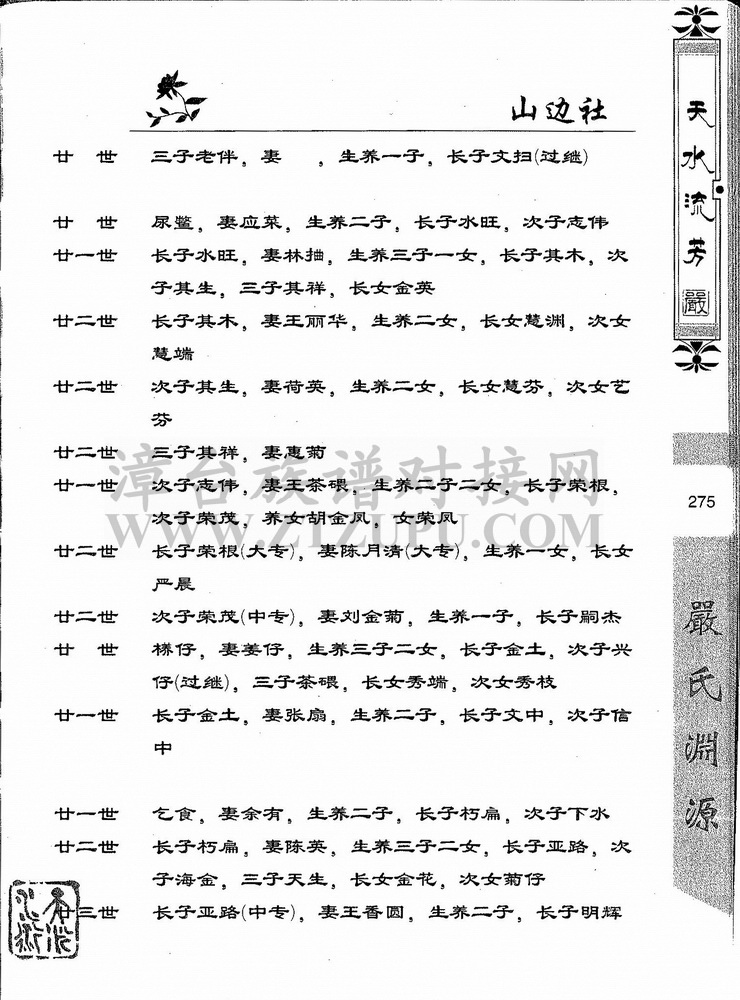 山边社
廿 世 三子老伴，妻 ，生养一子，长子文扫(过继)
廿 世 尿鳖，妻应菜，生养二子，长子水旺，次子志伟
廿一世 长子水旺，妻林抽，生养三子一女，长子其木，次
子其生，三子其祥，长女金英
廿二世 长子其木，妻王丽华，生养二女，长女慧渊，次女
慧端
廿二世 次子其生，妻荷英，生养二女，长女慧芬，次女艺
芬
廿二世 三子其祥，妻惠菊
廿一世 次子志伟，妻王茶碨，生养二子二女，长子荣根，
次子荣茂，养女胡金凤，女荣凤
廿二世 长子荣根(大专)，妻陈月清(大专)，生养一女，长女
严晨
廿二世 次子荣茂(中专)，妻刘金菊，生养一子，长子嗣杰
廿 世 梯仔，妻姜仔，生养三子二女，长子金土，次子兴
仔(过继)，三子茶碨，长女秀端，次女秀枝
廿一世 长子金土，妻张扇，生养二子，长子文中，次子信
中
廿一世 乞食，妻余有，生养二子，长子朽扁，次子下水
廿二世 长子朽扁，妻陈英，生养三子二女，长子亚路，次
子海金，三子天生，长女金花，次女菊仔
廿三世 长子亚路(中专)，妻王香圆，生养二子，长子明辉
天水流芳
嚴
275
嚴氏淵源
漳台族谱对接网
WWW.ZTZUPU.COM